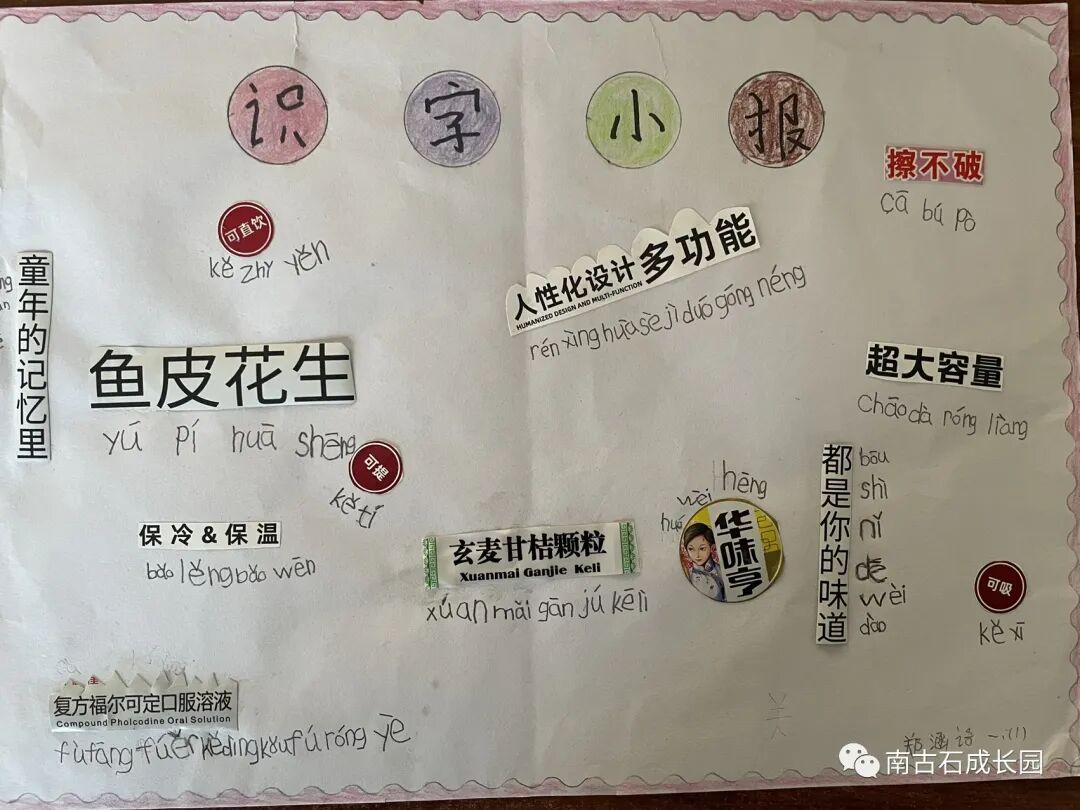 识字小报
擦不破
cā bú pò
可直饮
kě zhí yěn
人性化设计多功能
HUMANIZED DESIGN AND MULTI-FUNCTION
rén xìng huà sè jì duó góng néng
童年的记忆里
鱼皮花生
yú pí huā shēng
可提
kě tí
超大容量
chāo dà róng liàng
保冷&保温
bǎo lěng bǎo wēn
玄麦甘桔颗粒
Xuanmai Ganjie Keli
xúan mǎi gān jú kē lì
华味亨
huá wèi hēng
都是你的味道
bōu
shì
nǐ
dē
wèi
dào
可吸
kě xī
复方福尔可定口服溶液
Compound Pholcodine Oral Solution
fù fāng fú ěr kě dìng kǒu fú róng yè
郑涵诗 一.(1)
南古石成长园